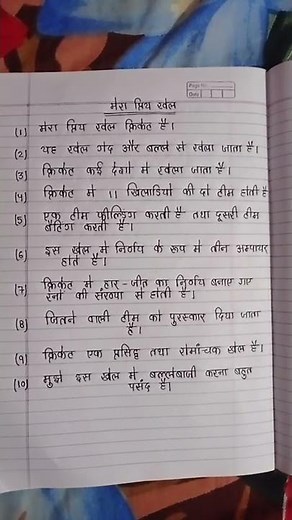 Page No.
Date
मेरा प्रिय खेल
(1) मेरा प्रिय खेल क्रिकेट है।
(2) यह खेल गेंद और बल्ले से खेला जाता है।
(3) क्रिकेट कई देशों में खेला जाता है।
(4) क्रिकेट में 11 खिलाडियों की दो टीम होती है
(5) एक टीम फील्डिंग करती है तथा दूसरी टीम
बैटिंग करती है।
(6) इस खेल में निर्णय के रूप में तीन अम्पायर
होते हैं।
(7) क्रिकेट में हार-जीत का निर्णय बनाए गए
रनों की संख्या से होती है।
(8) जितने वाली टीम को पुरस्कार दिया जाता
है।
(9) क्रिकेट एक प्रसिद्ध तथा रोमाँचक खेल है।
(10) मुझे इस खेल में बल्लेबाजी करना बहुत
पसंद है।